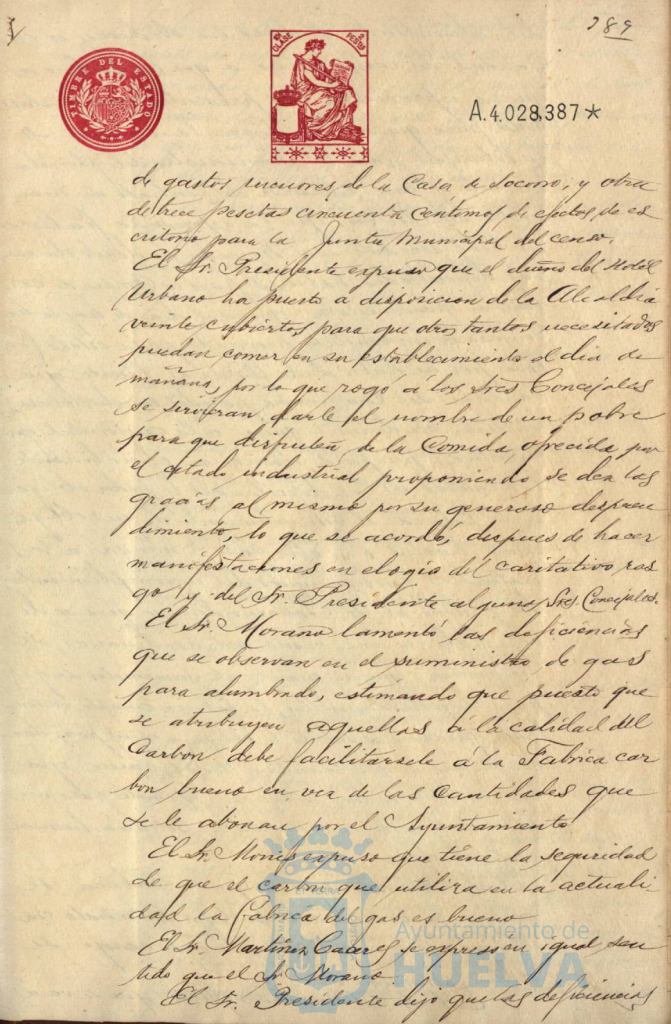 289
TIMBRE DEL ESTADO
CLASE PESETAS
A.4.028,387*
de gastos menores de la Casa de Socorro, y otra
de trece pesetas cincuenta centimos de efectos de es
critorio para la Junta Municipal del censo.
El Sr. Presidente expuso que el dueño del Hotel
Urbano ha puesto a disposicion de la Alcaldia
veinte cubiertos para que otros tantos necesitados
puedan comer en su establecimiento el dia de
mañana, por lo que rogó á los Sres Concejales
se sirvieran darle el nombre de un pobre
para que disfruten de la Comida ofrecida por
el citado industrial proponiendo se den las
gracias al mismo por su generoso despren
dimiento, lo que se acordó, despues de hacer
manifestaciones en elogio del caritativo ras
go y del Sr. Presidente algunos Sres Concejales.
El Sr. Morano lamentó las deficiencias
que se observan en el suministro de gas
para alumbrado, estimando que puesto que
se atribuyen aquellas á la calidad del
Carbon debe facilitarsele á la Fabrica car
bon bueno en vez de las Cantidades que
se le abonan por el Ayuntamiento
El Sr. expuso que tiene la seguridad
de que el carbon que utiliza en la actuali
dad la fabrica del gas es bueno
El Sr. Martinez se expresó en igual sen
tido que el Sr Morano
El Sr. Presidente dijo que las deficiencias
Ayuntamiento de
HUELVA